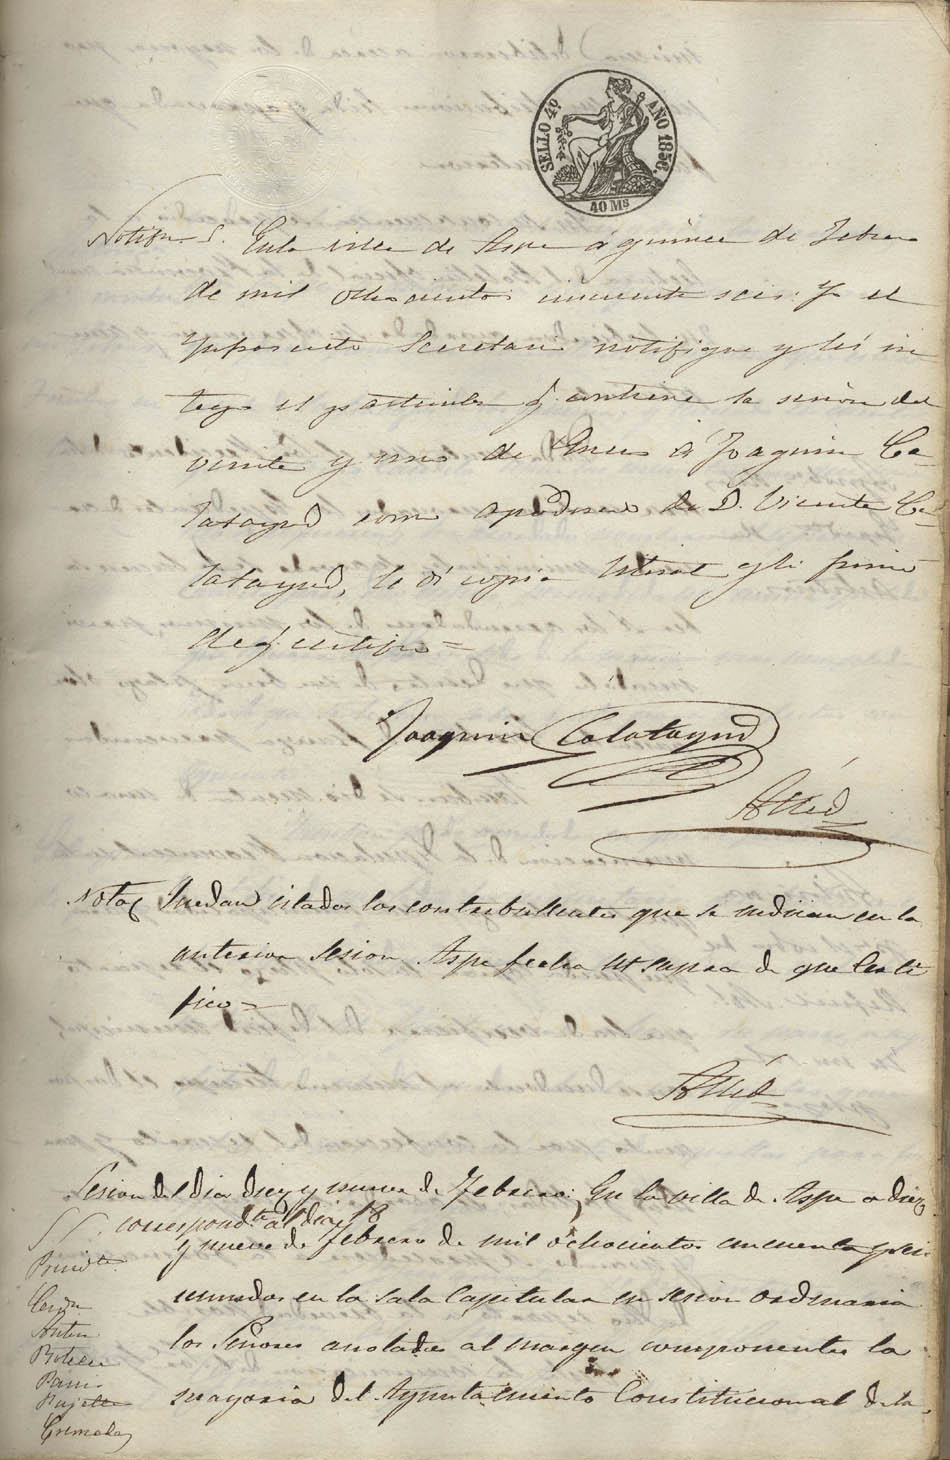 SELLO 4º AÑO 1856.
40 Ms
En la villa de Aspe á quince de Febrero
de mil ochocientos cincuenta y seis: Yo el
infrascrito Secretario notifique y leí in
tegro el particular q. contiene la sesion del
veinte y uno de Enero á Joaquin Ca-
latayud como apoderado de D. Vicente Ca-
latayud, le dí copia literal y lo firmó
de q. certifico=
Joaquin Calatayud
Nota( Quedan citados los contribullentes que se indican en la
anterior sesion Aspe fecha ut supra de que certi
fico=
Sesion del dia diez y nueve de Febrero; En la villa de Aspe a diez
correspondte al dia 18
y nueve de Febrero de mil ochocientos cincuenta y seis
reunidos en la sala Capitular en sesion ordinaria
los Señores anotados al margen componentes la
mayoria del Ayuntamiento Constitucional de la
SS.
Presidte
Cerdan
Anton
Botella
Pujalte
Cremades